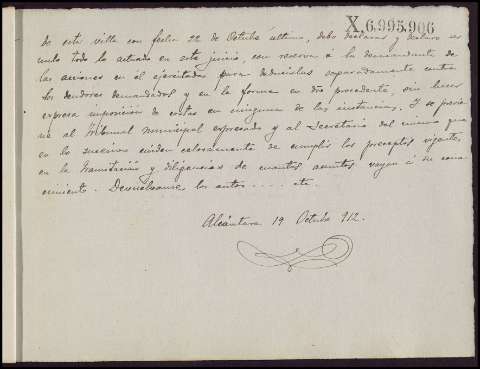 X.6.995.906
de esta villa con fecha 22 de Octubre último, debo declarar y declaro ser
nulo todo lo actuado en este juicio, con reserva á la demandante de
las acciones en él ejercitadas para deducirlas separadamente contra
los deudores demandados y en la forma en dro procedente, sin hacer
expresa imposición de costas en ninguna de las instancias. Y se previe
ne al Tribunal municipal expresado y al Secretario del mismo que
en lo sucesivo cuiden celosamente de cumplir los preceptos vigentes
en la tramitación y diligencias de cuantos asuntos vayan á su cono
cimiento. Devuelvanse los autos .... etc.
Alcántara 19 Octubre 912.